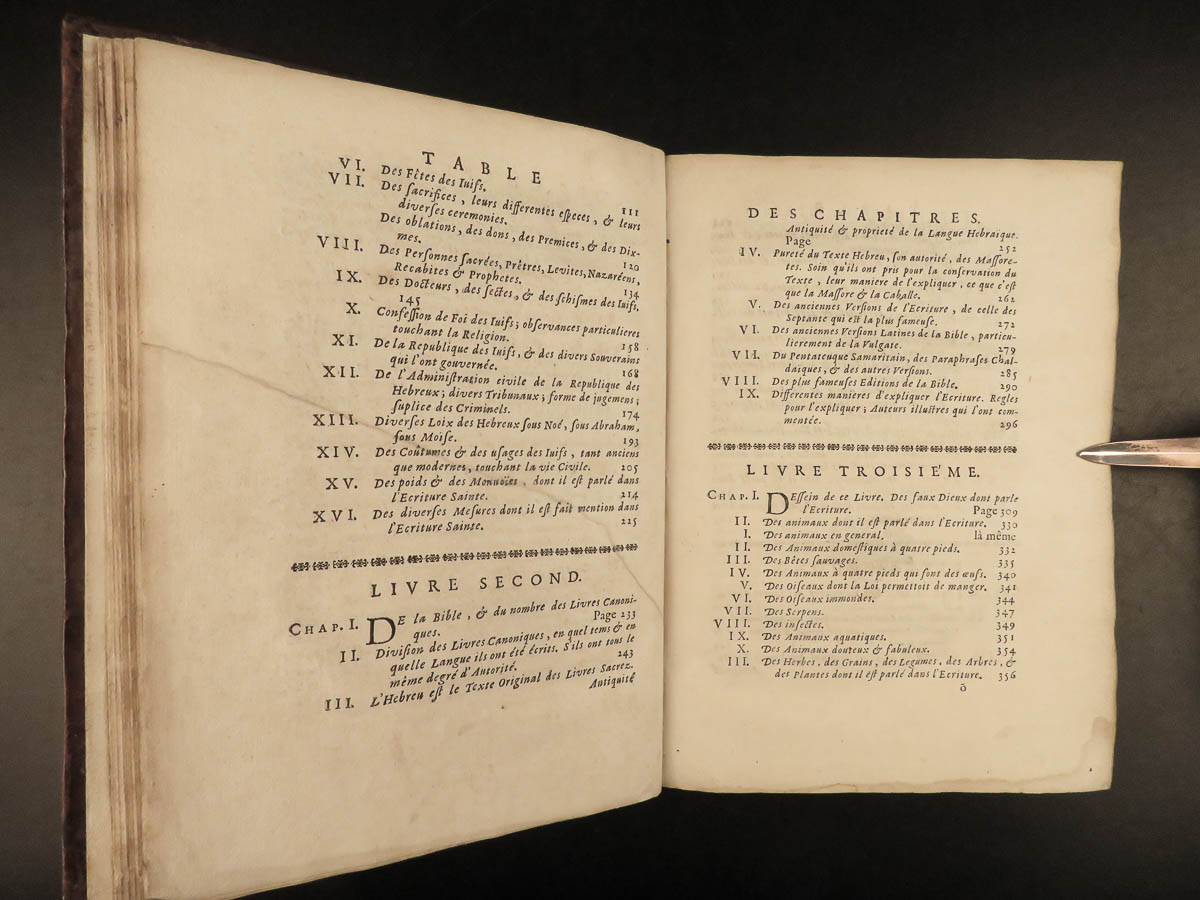 TABLE
VI. Des Fêtes des Iuifs. 111
VII. Des sacrifices, leurs differentes especes, & leurs
diverses ceremonies.
Des oblations, des dons, des Premices, & des Dix-
mes. 120
VIII. Des Personnes sacrées, Prêtres, Levites, Nazaréens,
Recabites & Prophetes. 134
IX. Des Docteurs, des sectes, & des schismes des Iuifs.
145
X. Confession de Foi des Iuifs; observances particulieres
touchant la Religion. 158
XI. De la Republique des Iuifs, & des divers Souverains
qui l'ont gouvernée. 168
XII. De l'Administration civile de la Republique des
Hebreux; divers Tribunaux; forme de jugemens;
suplice des Criminels. 174
XIII. Diverses Loix des Hebreux sous Noé, sous Abraham,
sous Moise. 193
XIV. Des Coûtumes & des usages des Iuifs, tant anciens
que modernes, touchant la vie Civile. 205
XV. Des poids & des Monnoïes, dont il est parlé dans
l'Ecriture Sainte. 214
XVI. Des diverses Mesures dont il est fait mention dans
l'Ecriture Sainte. 225
LIVRE SECOND.
CHAP. I. DE la Bible, & du nombre des Livres Canoni-
ques. Page 233
II. Division des Livres Canoniques, en quel tems & en
quelle Langue ils ont été écrits. S'ils ont tous le
même degré d'Autorité. 243
III. L'Hebreu est le Texte Original des Livres Sacrez.
Antiquité
DES CHAPITRES.
Antiquité & proprieté de la Langue Hebraïque.
Page 252
IV. Pureté du Texte Hebreu, son autorité, des Massore-
tes. Soin qu'ils ont pris pour la conservation du
Texte, leur maniere de l'expliquer, ce que c'est
que la Massore & la Caballe. 262
V. Des anciennes Versions de l'Ecriture, de celle des
Septante qui est la plus fameuse. 272
VI. Des anciennes Versions Latines de la Bible, particu-
lierement de la Vulgate. 279
VII. Du Pentateuque Samaritain, des Paraphrases Chal-
daïques, & des autres Versions. 285
VIII. Des plus fameuses Editions de la Bible. 290
IX. Differentes manieres d'expliquer l'Ecriture. Regles
pour l'expliquer; Auteurs illustres qui l'ont com-
mentée. 296
LIVRE TROISIE'ME.
CHAP. I. DEssein de ce Livre. Des faux Dieux dont parle
l'Ecriture. Page 309
II. Des animaux dont il est parlé dans l'Ecriture. 330
I. Des animaux en general. là même
II. Des Animaux domestiques à quatre pieds. 332
III. Des Bêtes sauvages. 335
IV. Des Animaux à quatre pieds qui font des œufs. 340
V. Des Oiseaux dont la Loi permettoit de manger. 341
VI. Des Oiseaux immondes. 344
VII. Des Serpens. 347
VIII. Des insectes. 349
IX. Des Animaux aquatiques. 351
X. Des Animaux douteux & fabuleux. 354
III. Des Herbes, des Grains, des Legumes, des Arbres, &
des Plantes dont il est parlé dans l'Ecriture. 356
õ